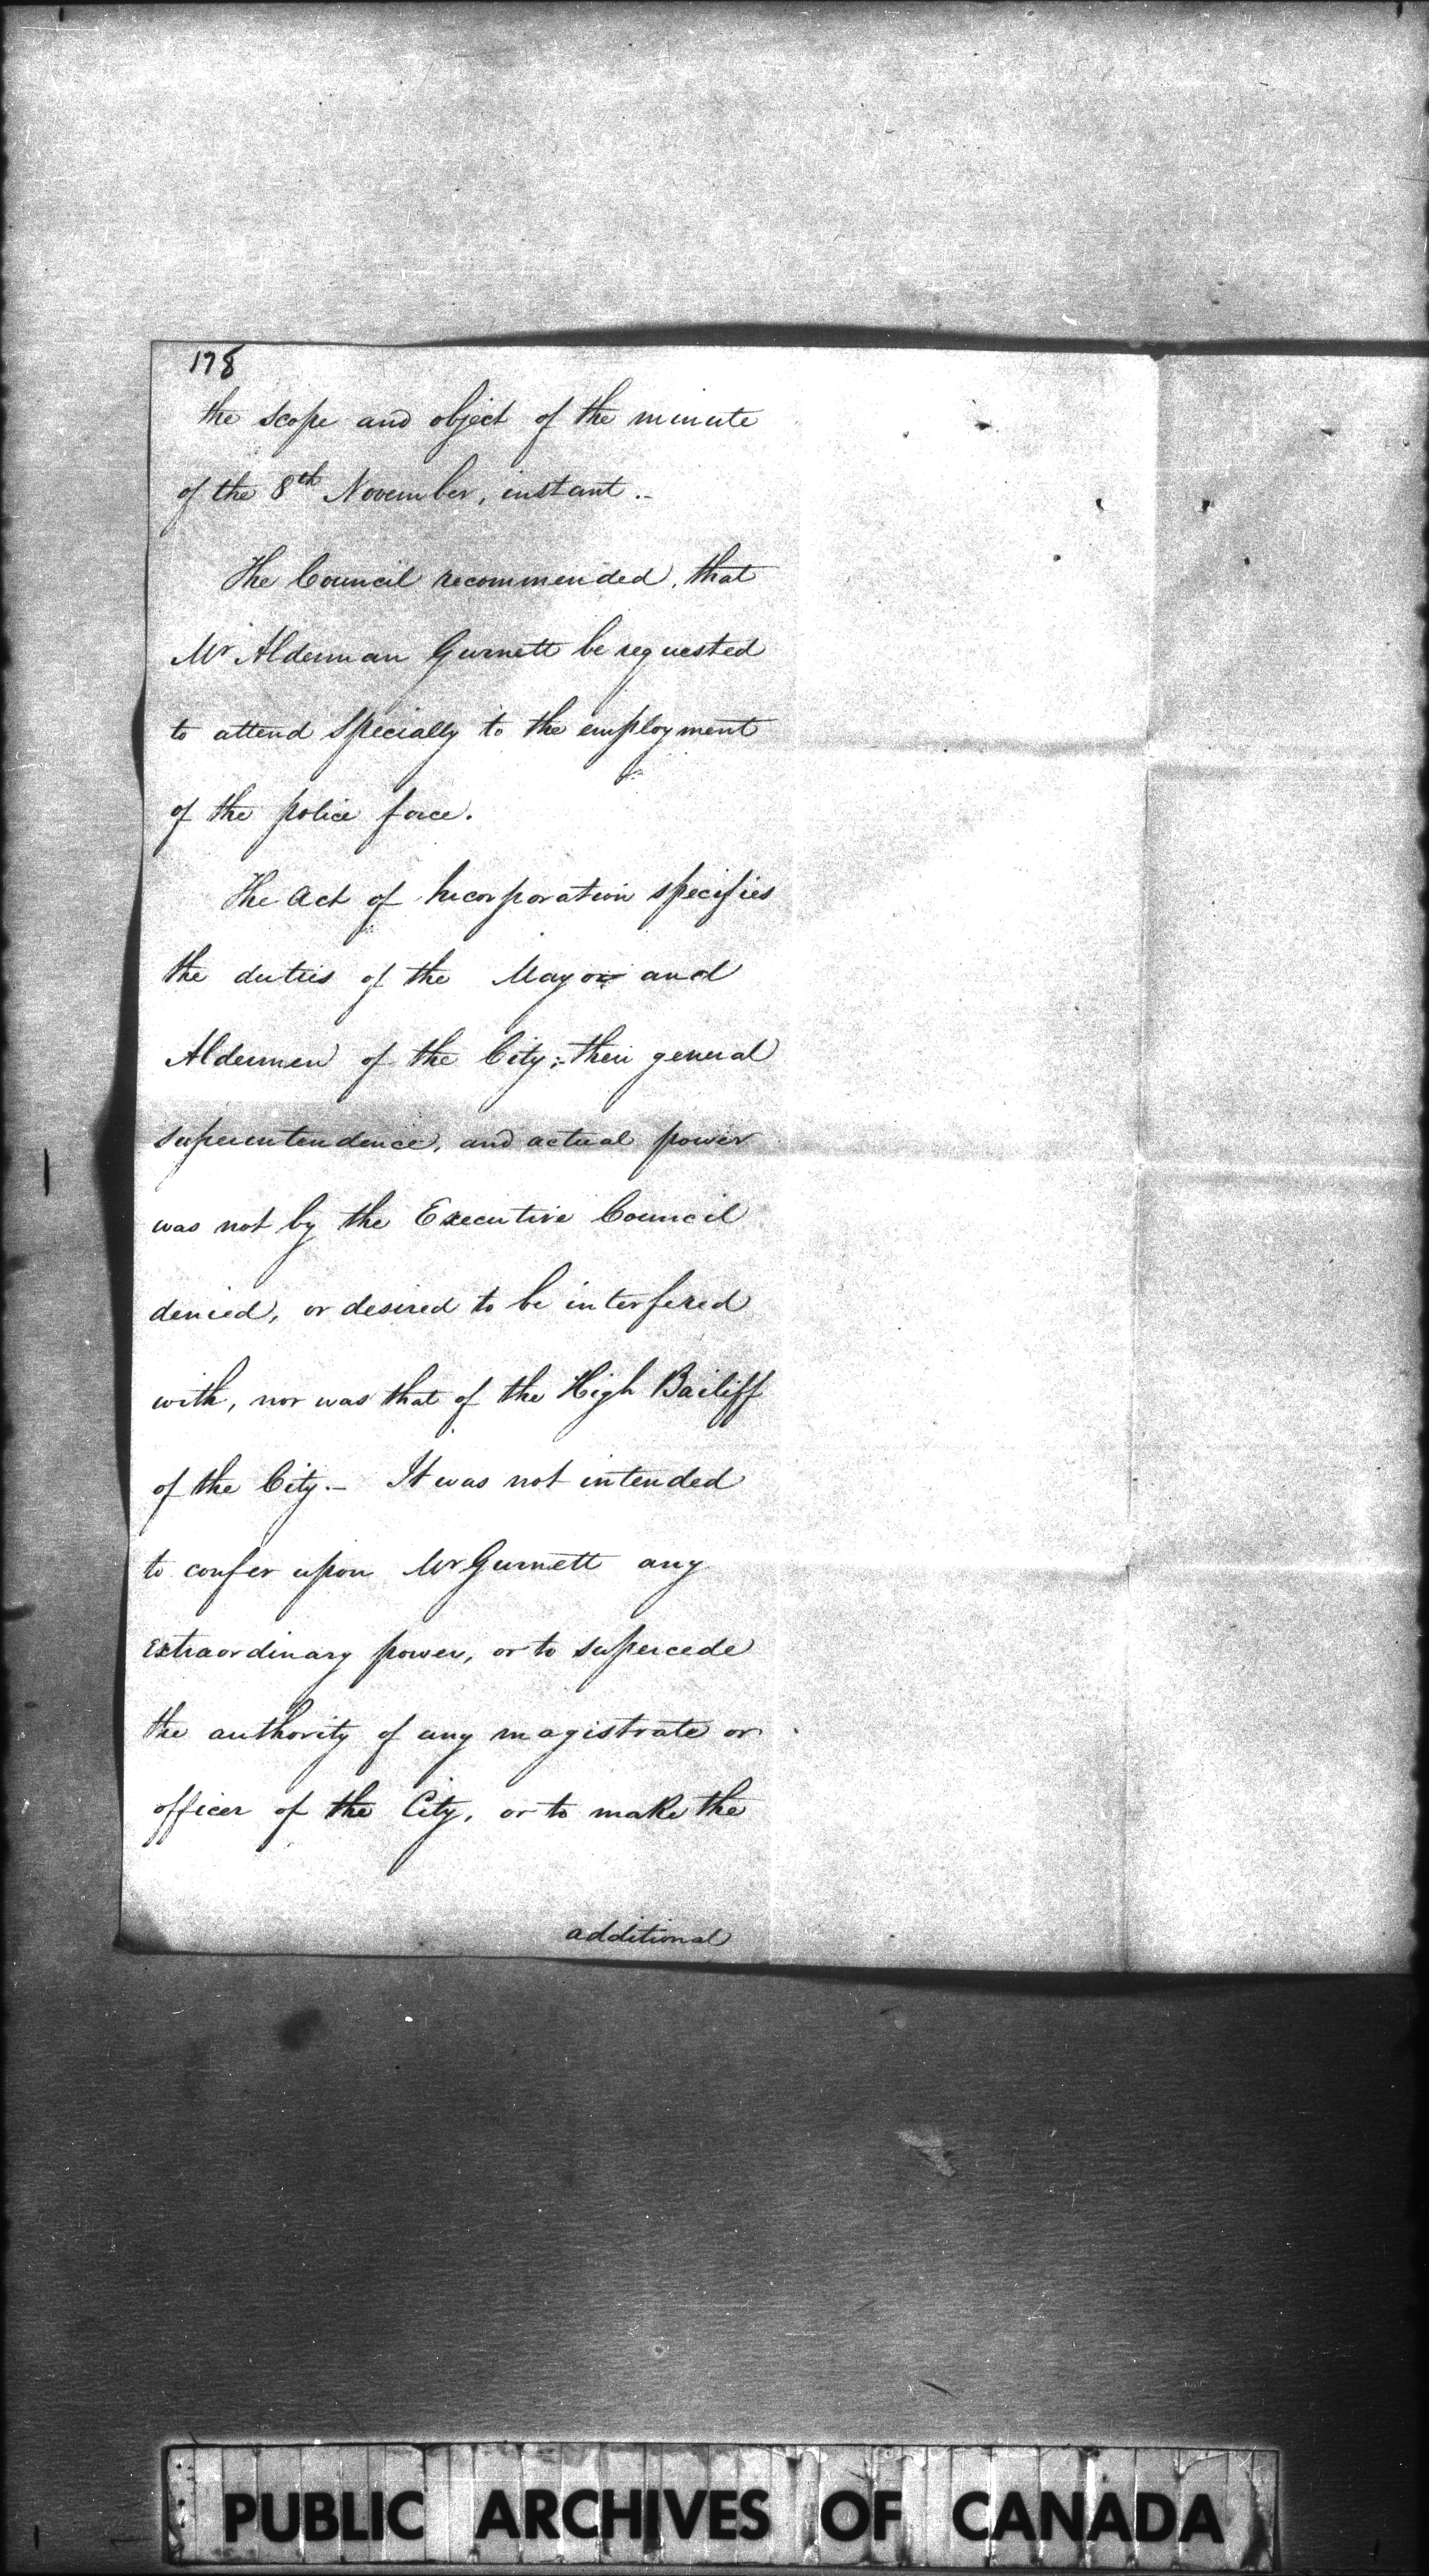 178
the scope and object of the minute
of the 8th November, instant.-
The Council recommended, that
Mr Alderman Gurnett be requested
to attend specially to the employment
of the police force.
The Act of Incorporation specifies
the duties of the Mayor and
Aldermen of the City;- their general
superintendence, and actual power
was not by the Executive Council
denied, or desired to be interfered
with, nor was that of the High Bailiff
of the City.- It was not intended
to confer upon Mr Gurnett any
extraordinary power, or to supercede
the authority of any magistrate or
officer of the City, or to make the
additional
PUBLIC ARCHIVES OF CANADA